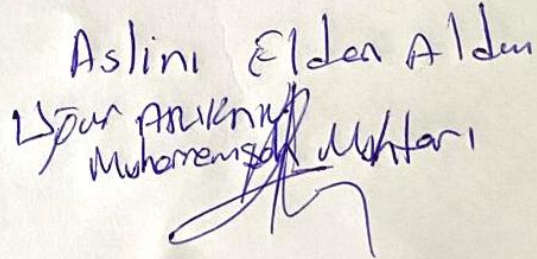 Aslını Elden Aldım
Uğur
Muharremşah Muhtarı